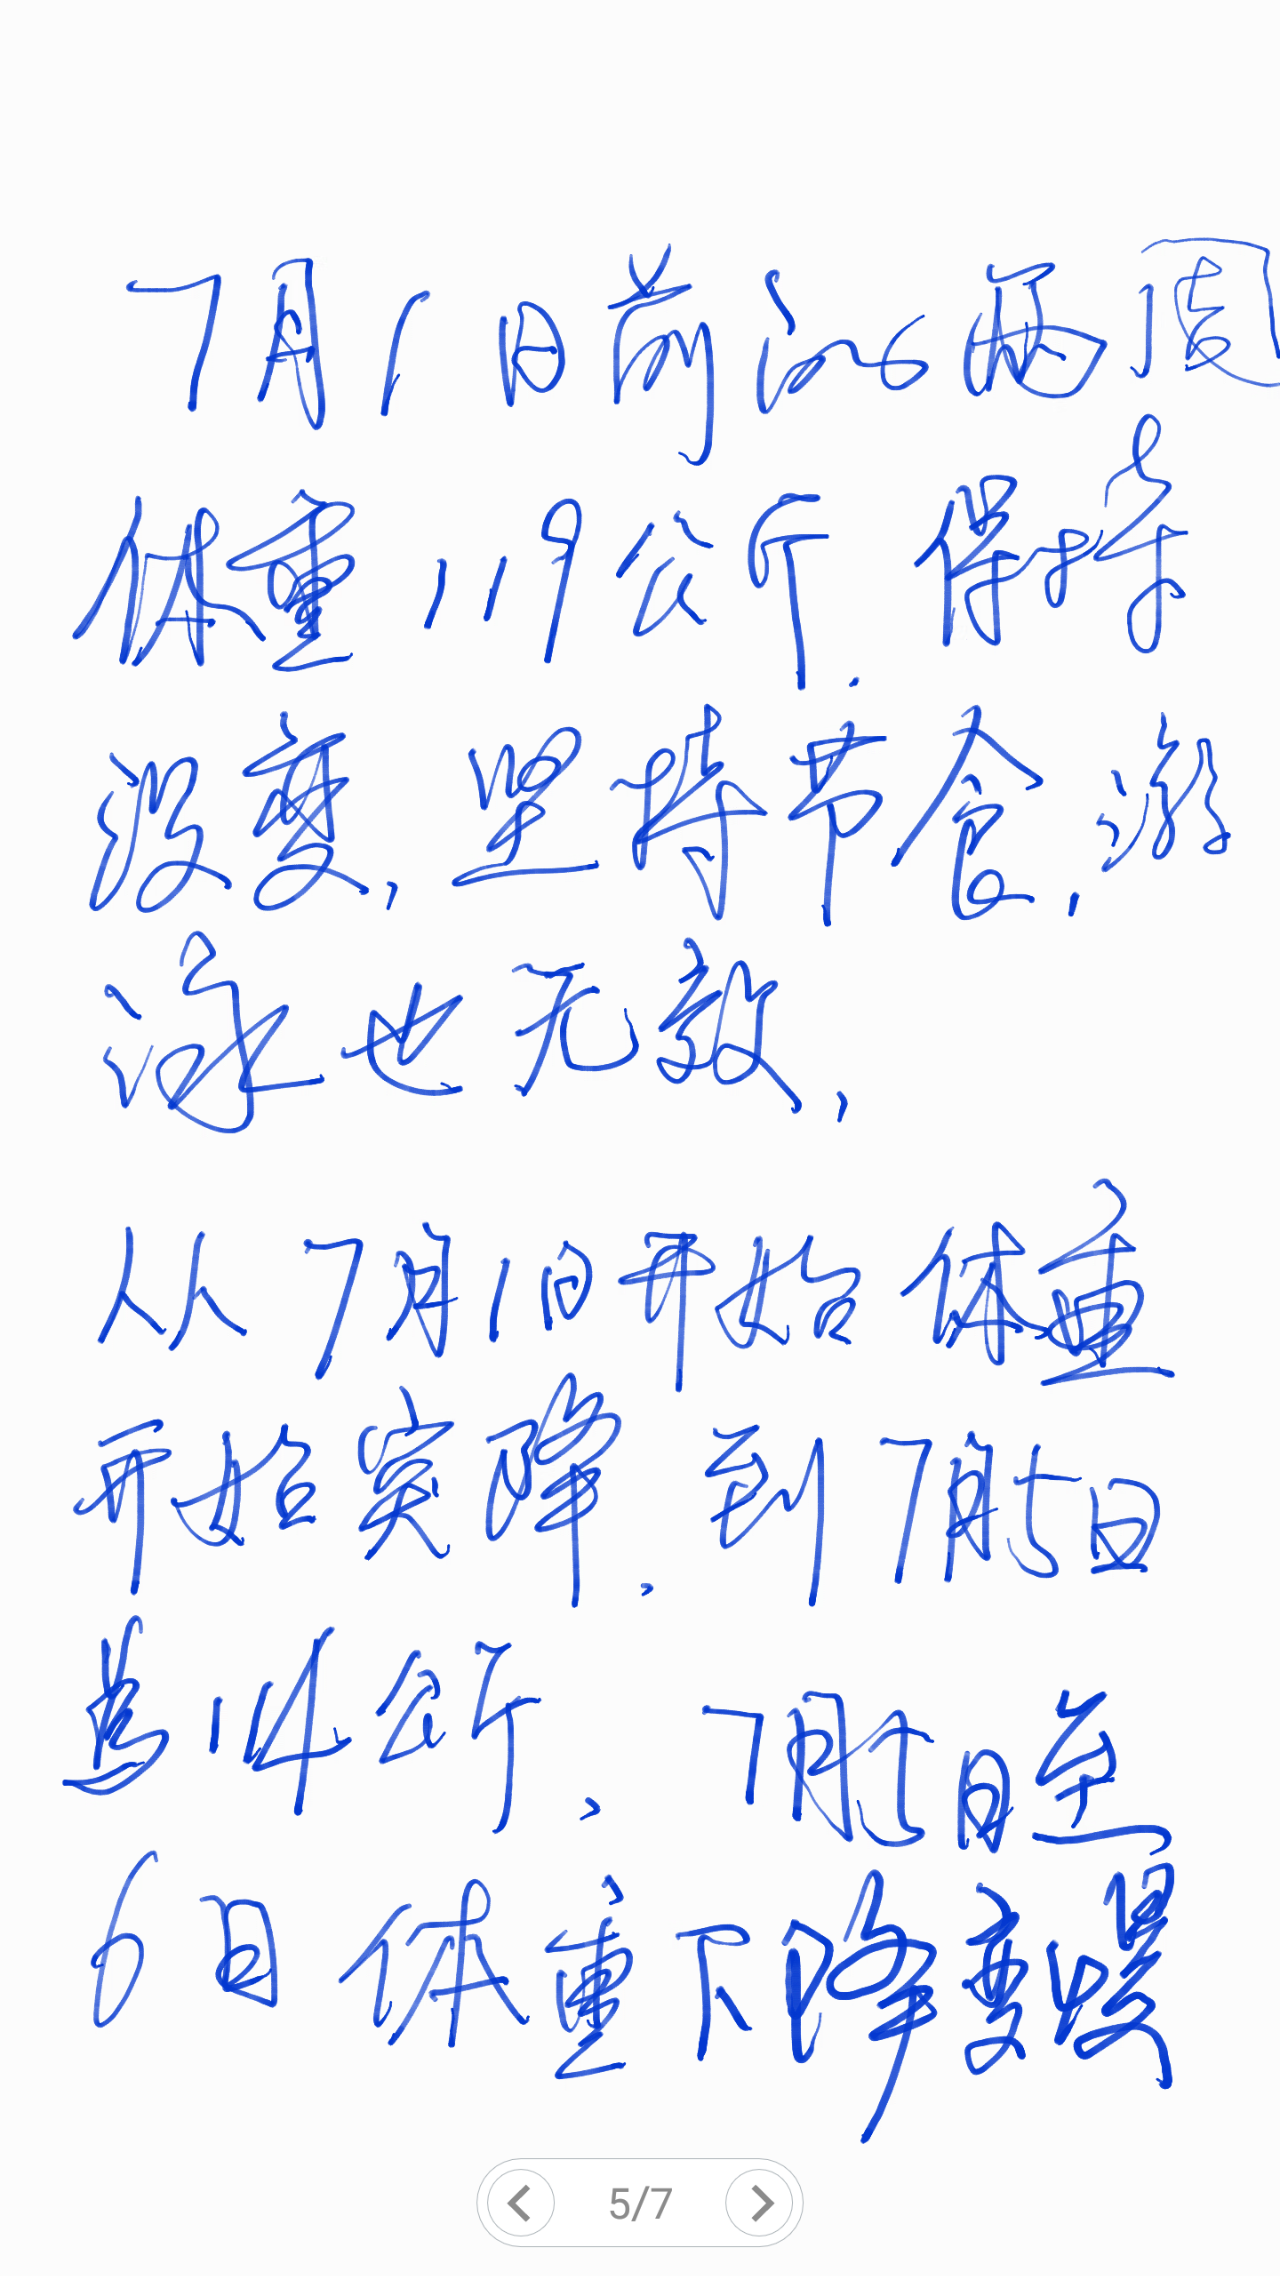 7月1日前 两周
体重119公斤.保持
没变,坚持节食,游
泳也无效,
从7月1日开始体重
开始突降.到7月5日
114公斤、7月5日至
6日体重下降变缓
5/7